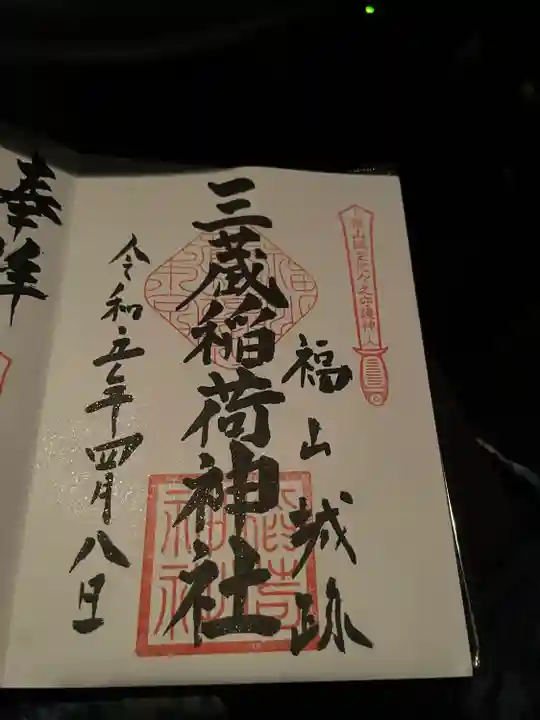 福山城跡
三蔵稲荷神社
令和五年四月八日
奉拝